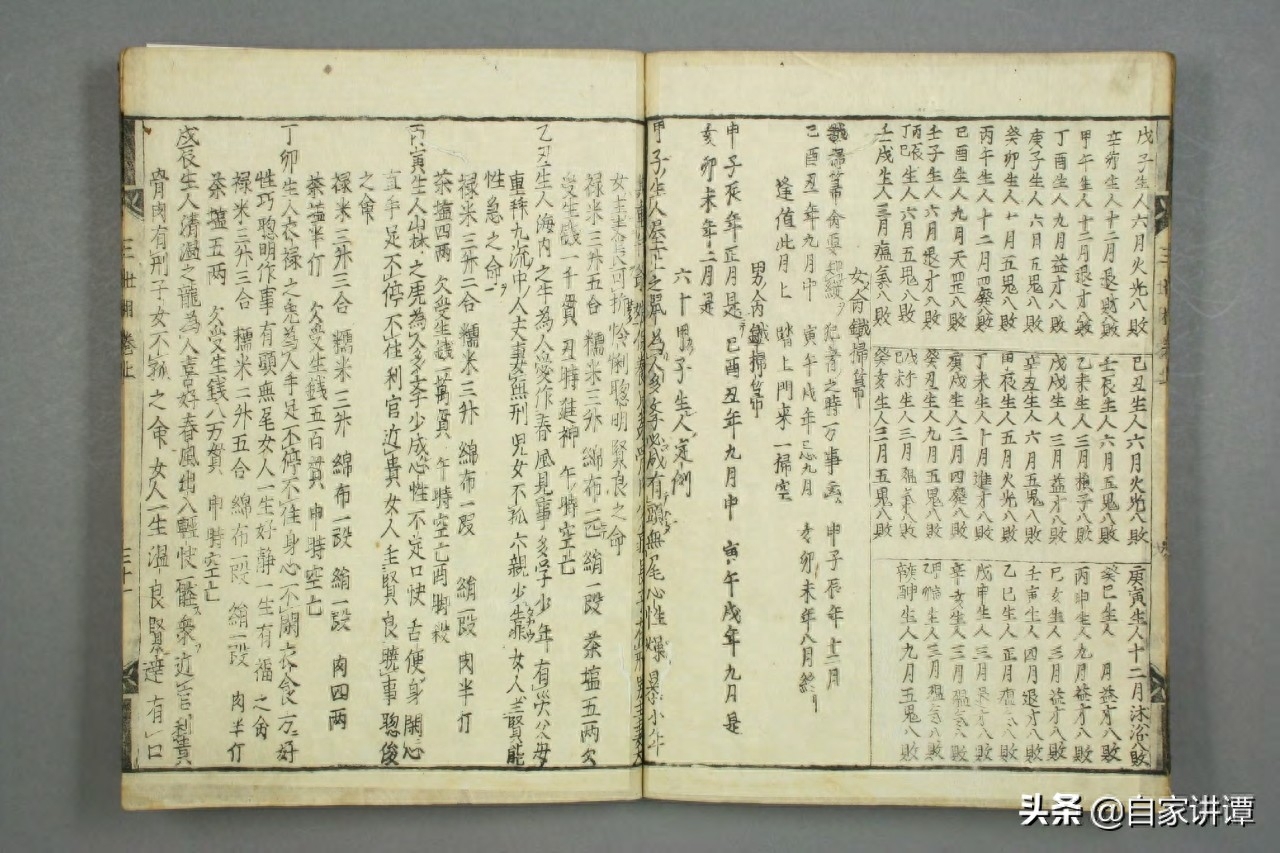 戊子生人六月火光八敗
辛卯生人十二月退財八敗
甲午生人十二月退才八敗
丁酉生人九月益才八敗
庚子生人六月五鬼八敗
癸卯生人十月五鬼八敗
丙午生人十二月四癈八敗
己酉生人九月天罡八敗
壬子生人六月退才八敗
丙辰生人六月五鬼八敗
丁巳
壬戌生人三月瘟㷌八敗
己丑生人六月火光八敗
壬辰生人六月五鬼八敗
乙未生人三月
戊戌生人三月益才八敗
辛丑生人六月五鬼八敗
甲辰生人五月火光八敗
丁未生人十月進才八敗
庚戌生人三月四癈八敗
癸丑生人九月五鬼八敗
生人三月
癸亥生人二月五鬼八敗
庚寅生人十二月沐浴八敗
癸巳生人 月益才八敗
丙申生人九月益才八敗
己亥生人三月益才八敗
壬寅生人四月退才八敗
乙巳生人正月
戊申生人三月退才八敗
辛亥生人三月
生人三月
生人九月五鬼八敗
女命鐵掃箒
犯者之時万事 甲子辰年十二月
己酉丑年九月中 寅午戌年忌九月 亥卯未年八月終
逢值此月上 踏上門來一掃空
男命鐵掃箒
申子辰年正月是 巳酉丑年九月中 寅午戌年九月是
亥卯未年二月是
六十甲子生人定例
甲子生人屋上之鼠 為人多 必成有頭無尾心性燥暴小年
女主 伶俐聰明賢良之命
祿米三升五合 糯米三升 綿布一疋 絹一段 茶塩五两 欠
受生錢一千貫 丑時進神 午時空亡
乙丑生人海内之牛為人愛作春風見事多學少年有災父母
重秤九流中人夫妻無刑 児女不孤六親少靠女人主賢能
性急之命
祿米三升二合 糯米三升 綿布一段 絹一段 肉半仃
茶塩四两 欠受生錢一萬貫 午時空亡酉
丙寅生人山林之虎為人多学少成心性不定口快舌便身閑心
直手足不停不住利官近貴女人主賢良曉事聰俊
之命
祿米三升三合 糯米三升 綿布一段 絹一段 肉四两
茶塩半仃 欠受生錢五百貫 申時空亡
丁卯生人衣祿之兎為人手足不停不住身心不閑衣食方好
性巧聰明作事有頭無尾女人一生好静一生有福之命
祿米三升三合 糯米二升五合 綿布一段 絹一段 肉半仃
茶塩五两 欠受生錢八万貫 申時空亡
戊辰生人清温之龍為人喜好春風出入輕快一 衆近官利貴
骨肉有刑子女不孤之命女人一生温良賢達有口
三世相卷上
三十一
头条 @自家讲谭